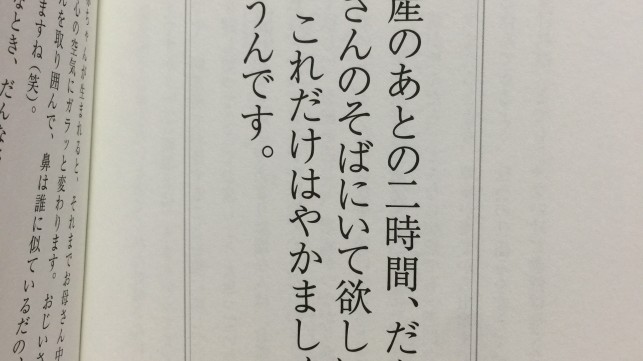 産のあとの二時間、だ
さんのそばにいて欲し
これだけはやかまし
うんです。
ちゃんが生まれると、それまでお母さん中
心の空気にガラッと変わります。おじいさ
んを取り囲んで、鼻は誰に似ているだの
ますね(笑)。
なとき、だんな